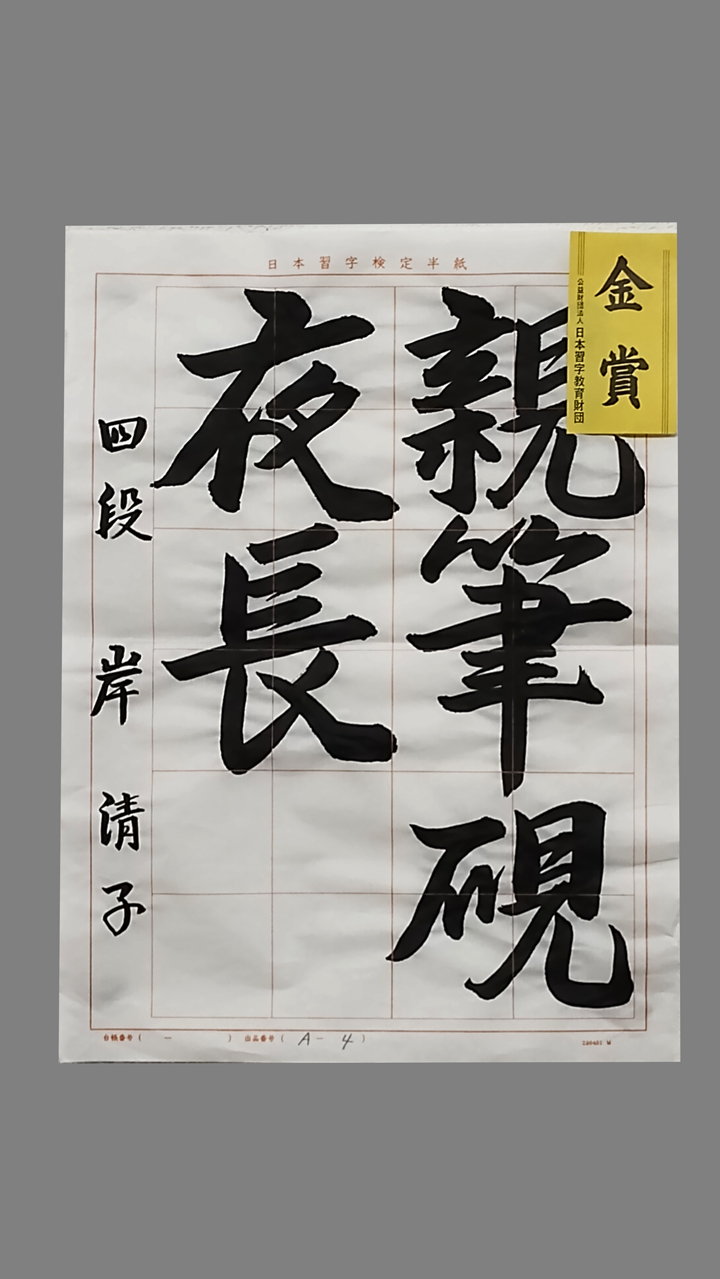 日本習字検定半紙
金賞
公益財団法人日本習字教育財団
親筆硯
夜長
四段 岸 清子
台帳番号( － ) 出品番号( A-4 )